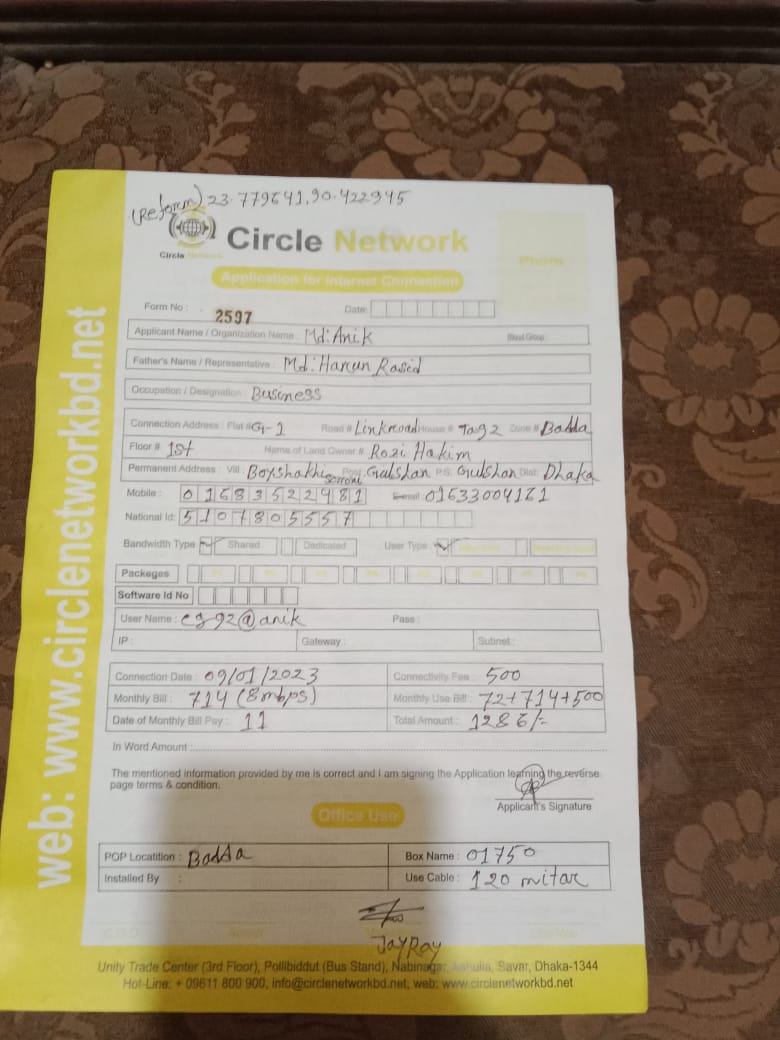 (Reform) 23.779641,90.422945
Circle Network
Circle Network
Application for Internet Connection
Photo
Form No : 2597 Date:
Applicant Name / Organization Name : Md: Anik Blood Group :
Father's Name / Representative : Md: Harun Rasid
Occupation / Designation : Business
Connection Address : Flat # G-1 Road # Linkroad House # Zone # Badda
Floor # 1st Name of Land Owner # Rozi Hakim
Permanent Address : Vill : Boyshakhi Post: Gulshan P.S. Gulshan Dist: Dhaka
Mobile : 01683522481 E-mail 01533004161
National Id: 5107805557
Bandwidth Type Shared Dedicated User Type :
Packeges
Software Id No
User Name : Pass :
IP : Gateway : Subnet :
Connection Date : 09/01/2023 Connectivity Fee : 500
Monthly Bill : 714 (8mbps) Monthly Use Bill : 72+714+500
Date of Monthly Bill Pay : 11 Total Amount : 1286/-
In Word Amount :
The mentioned information provided by me is correct and I am signing the Application learning the reverse
page terms & condition.
Applicant's Signature
Office Use
POP Locatition : Badda Box Name : 01750
Installed By : Use Cable : 120 mitar
JAY RAY
Unity Trade Center (3rd Floor), Pollibiddut (Bus Stand), Nabinagar, Ashulia, Savar, Dhaka-1344
Hot-Line: + 09611 800 900, info@circlenetworkbd.net, web: www.circlenetworkbd.net
web: www.circlenetworkbd.net